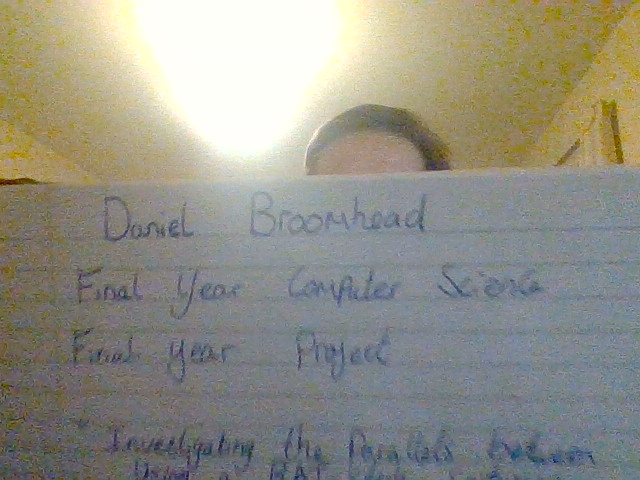 Daniel Broomhead
Final Year Computer Science
Final Year Project
"Investigating the Parallels between
Using a